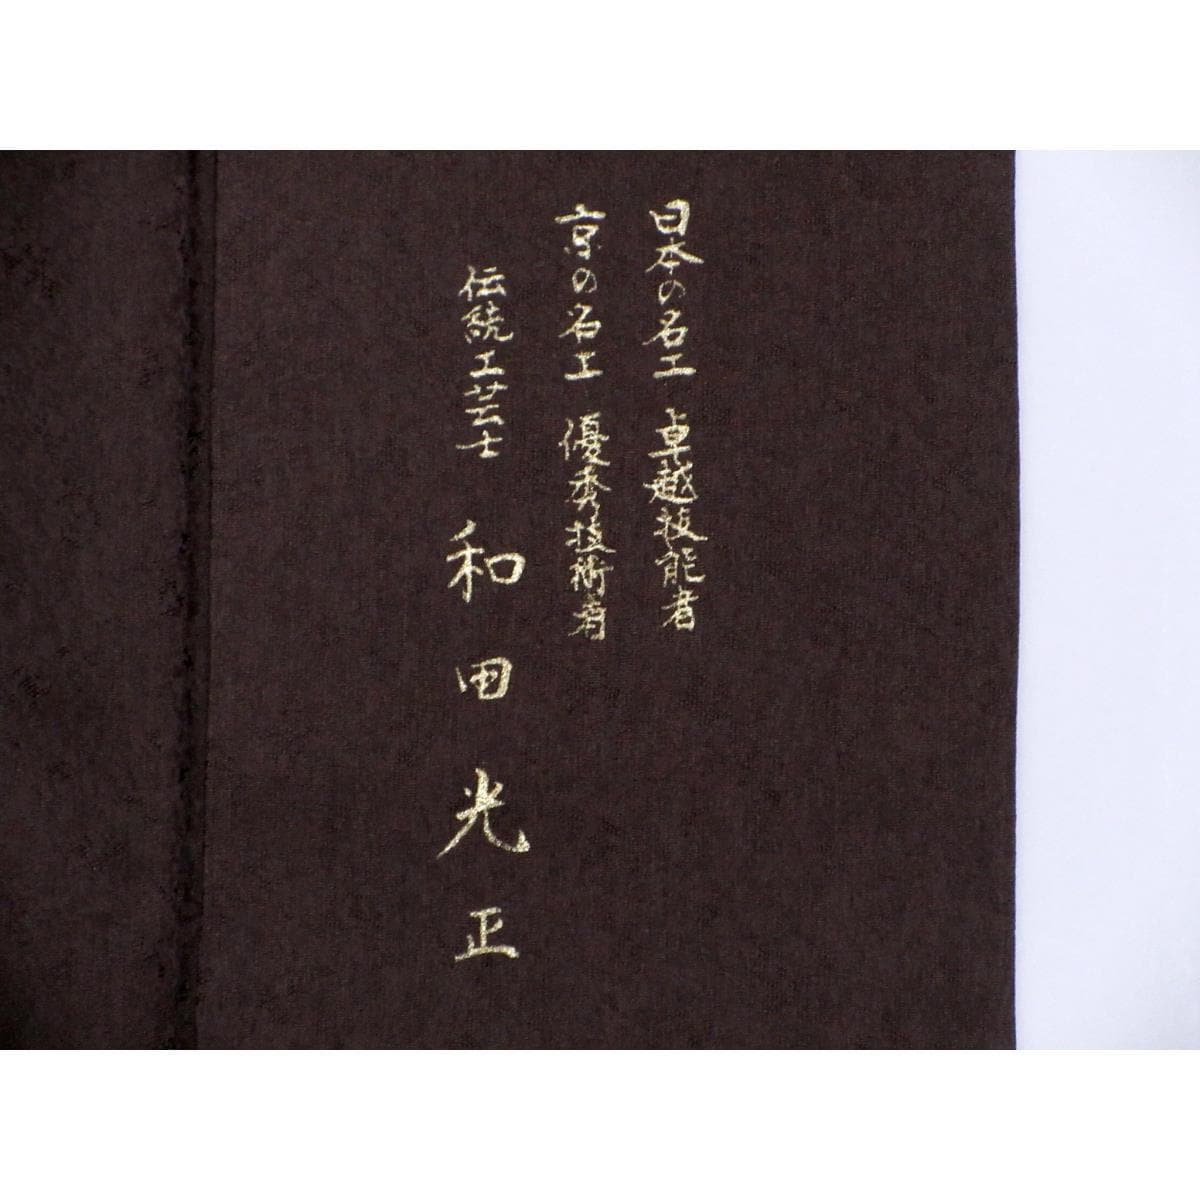 日本の名工 卓越技能者
京の名工 優秀技術者
伝統工芸士 和田光正